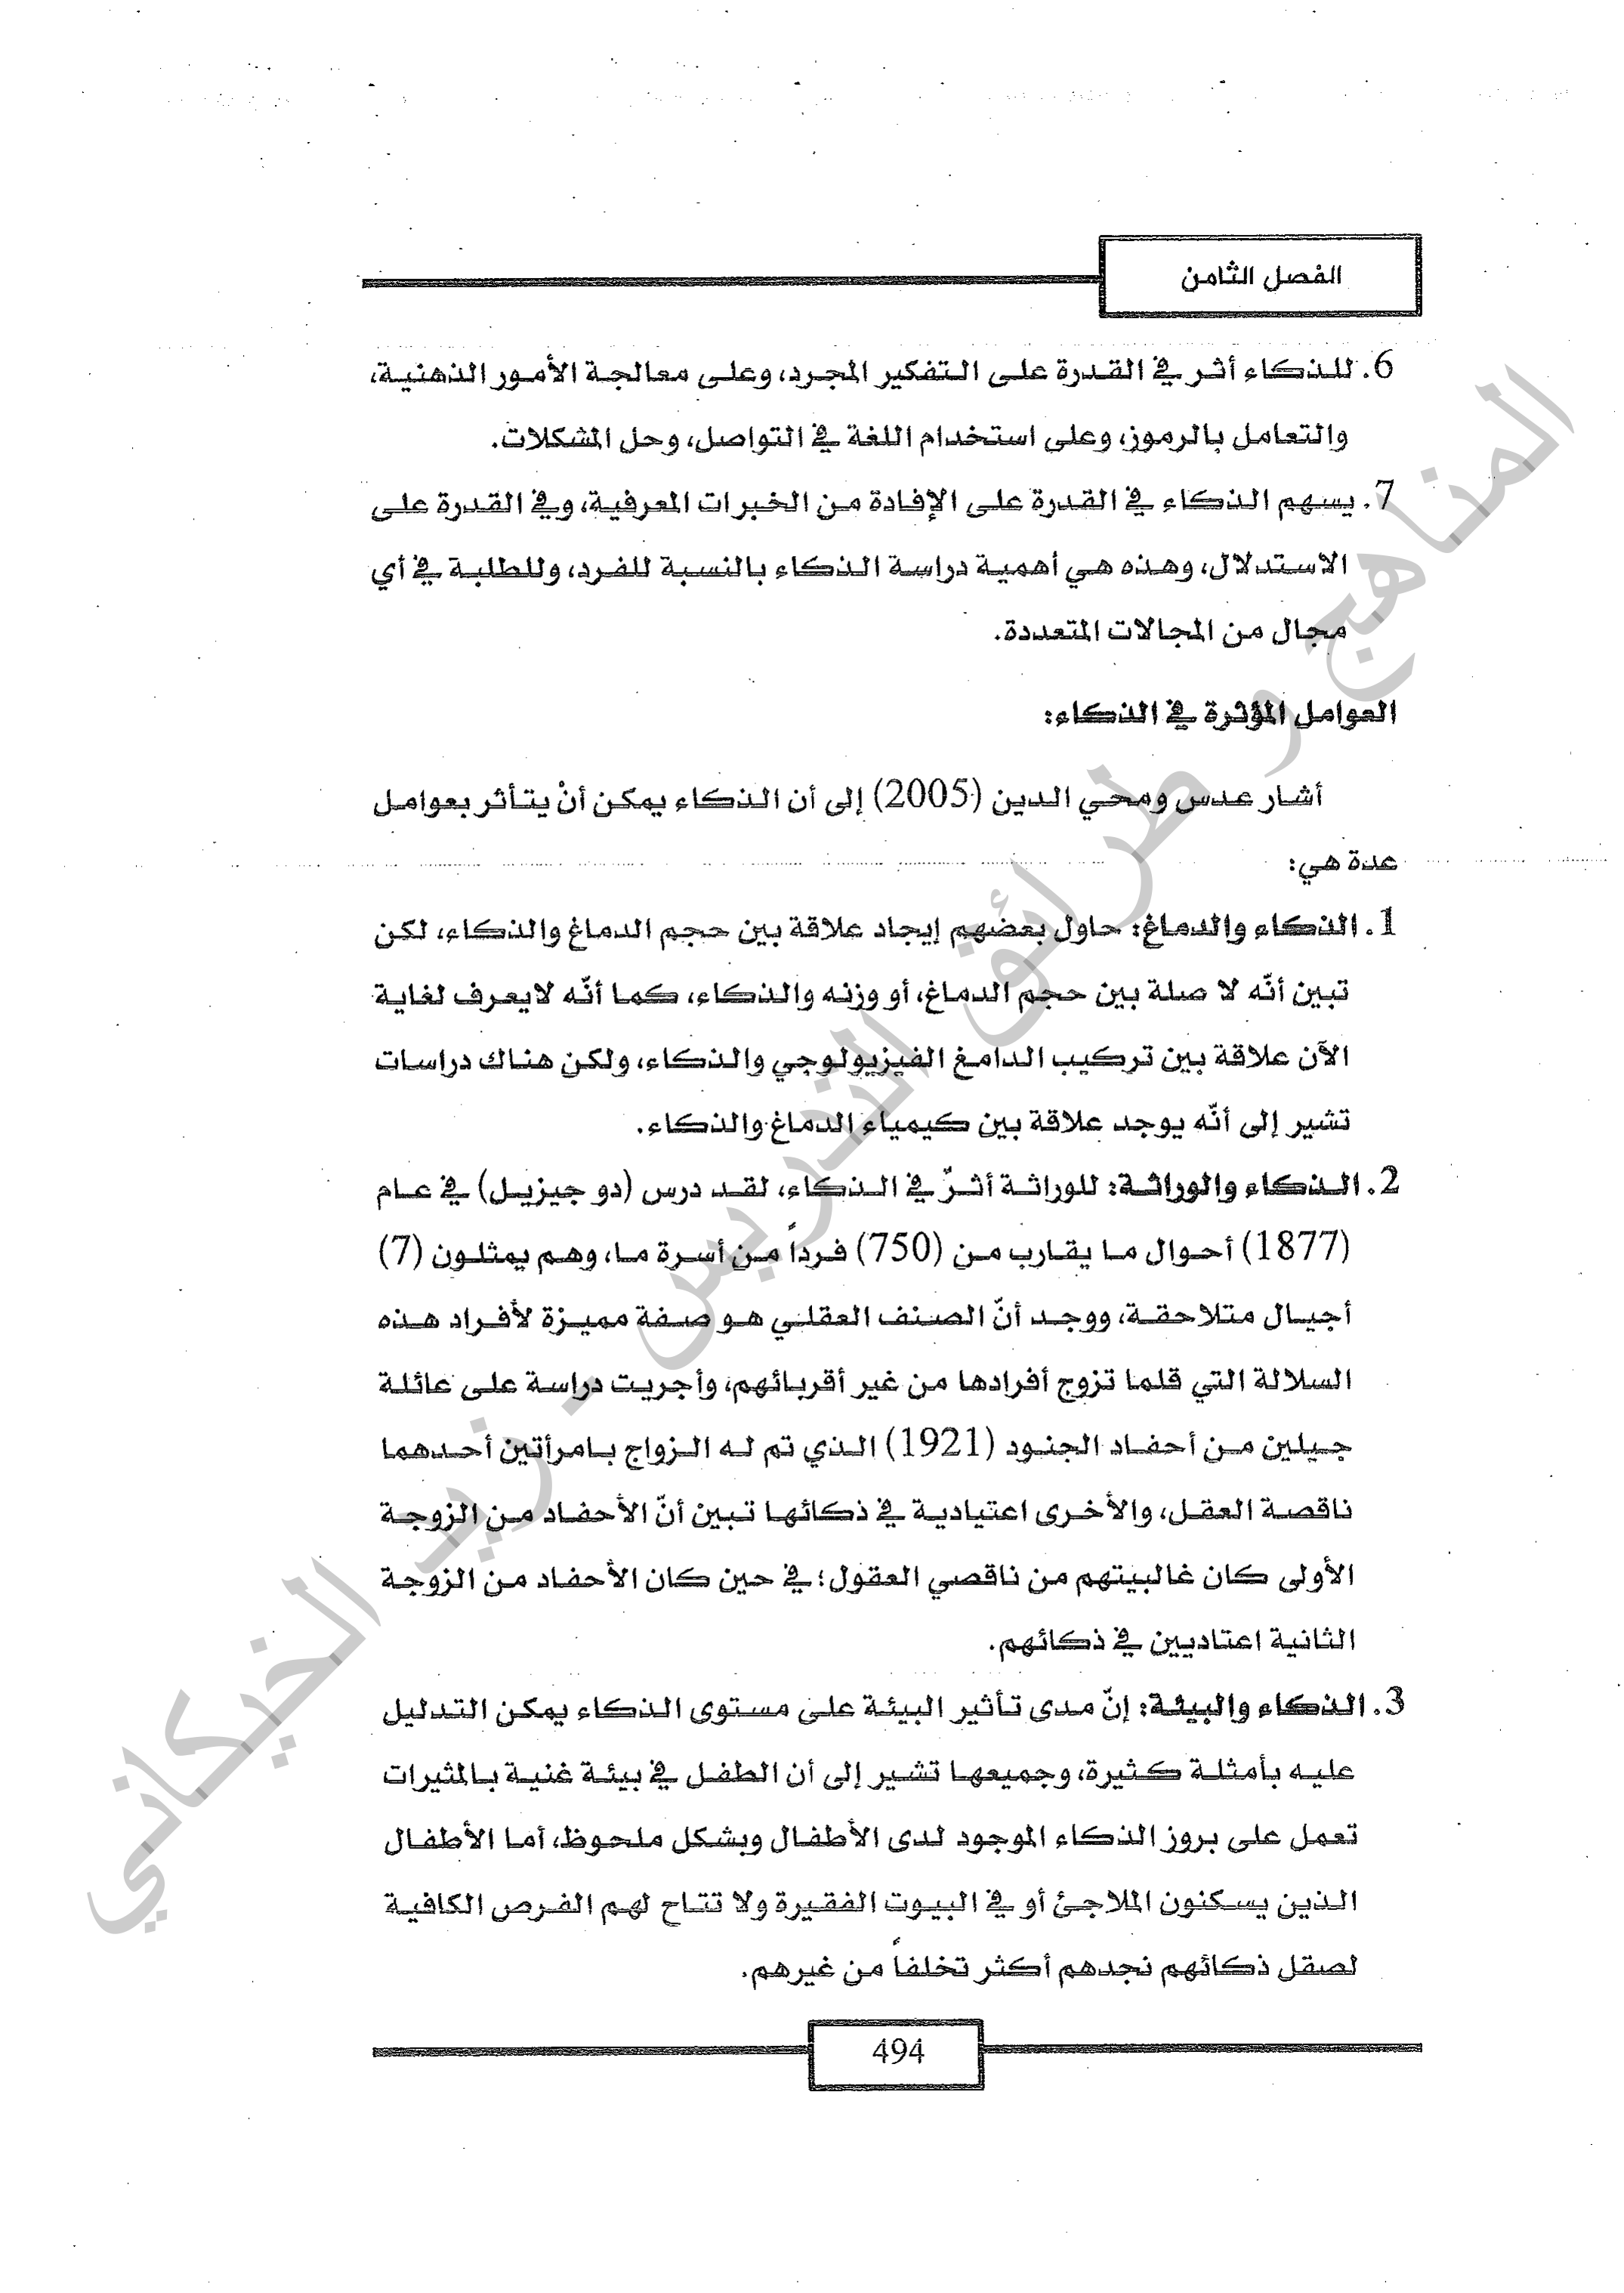 الفصل الثامن
6. للذكاء أثر في القدرة على التفكير المجرد، وعلى معالجة الأمور الذهنية،
والتعامل بالرموز، وعلى استخدام اللغة في التواصل، وحل المشكلات.
7. يسهم الذكاء في القدرة على الإفادة من الخبرات المعرفية، وفي القدرة على
الاستدلال، وهذه هي أهمية دراسة الذكاء بالنسبة للفرد، وللطلبة في أي
مجال من المجالات المتعددة.
العوامل المؤثرة في الذكاء:
أشار عدس ومحي الدين (2005) إلى أن الذكاء يمكن أنْ يتأثر بعوامل
عدة هي:
1. الذكاء والدماغ: حاول بعضهم إيجاد علاقة بين حجم الدماغ والذكاء، لكن
تبين أنّه لا صلة بين حجم الدماغ، أو وزنه والذكاء، كما أنّه لايعرف لغاية
الآن علاقة بين تركيب الدامغ الفيزيولوجي والذكاء، ولكن هناك دراسات
تشير إلى أنّه يوجد علاقة بين كيمياء الدماغ والذكاء.
2. الذكاء والوراثة: للوراثة أثرٌ في الذكاء، لقد درس (دو جيزيل) في عام
(1877) أحوال ما يقارب من (750) فرداً من أسرة ما، وهم يمثلون (7)
أجيال متلاحقة، ووجد أنّ الصنف العقلي هو صفة مميزة لأفراد هذه
السلالة التي قلما تزوج أفرادها من غير أقربائهم، وأجريت دراسة على عائلة
جيلين من أحفاد الجنود (1921) الذي تم له الزواج بامرأتين أحدهما
ناقصة العقل، والأخرى اعتيادية في ذكائها تبين أنّ الأحفاد من الزوجة
الأولى كان غالبيتهم من ناقصي العقول؛ في حين كان الأحفاد من الزوجة
الثانية اعتاديين في ذكائهم.
3. الذكاء والبيئة: إنّ مدى تأثير البيئة على مستوى الذكاء يمكن التدليل
عليه بأمثلة كثيرة، وجميعها تشير إلى أن الطفل في بيئة غنية بالمثيرات
تعمل على بروز الذكاء الموجود لدى الأطفال وبشكل ملحوظ، أما الأطفال
الذين يسكنون الملاجئ أو في البيوت الفقيرة ولا تتاح لهم الفرص الكافية
لصقل ذكائهم نجدهم أكثر تخلفاً من غيرهم.
494
المناهج و طرائق التدريس - زيد الخيكاني